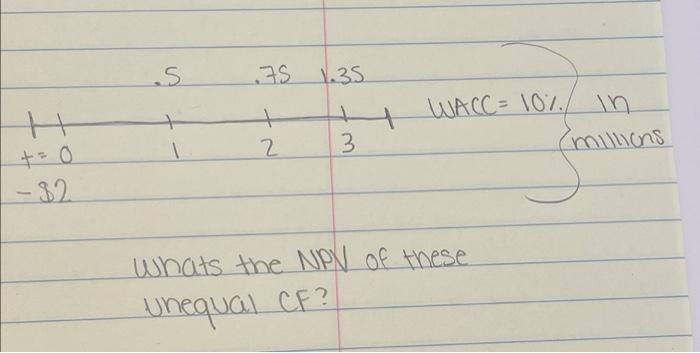 .5 .75 1.35
WACC = 10% in
t= 0 1 2 3 millions
-$2
whats the NPV of these
unequal CF?